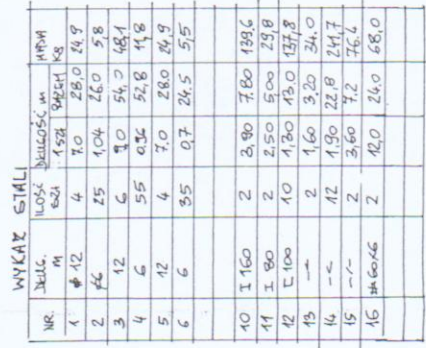 WYKAZ STALI
NR. DŁUG. M ILOŚĆ SZT DŁUGOŚĆ m 1 SZT RAZEM MASA KG
1 ϕ 12 4 7.0 28,0 24,9
2 ϕ6 25 1,04 26.0 5,8
3 12 6 9,0 54,0 48,1
4 6 55 0,96 52,8 11,8
5 12 4 7.0 28.0 24,9
6 6 35 0,7 24.5 5,5
10 I 160 2 3,90 7.80 139,6
11 I 80 2 2.50 5,00 29,8
12 [ 100 10 1,30 13.0 137,8
13 –"– 2 1,60 3,20 34.0
14 –"– 12 1,90 22,8 241,7
15 –"– 2 3,60 7.2 76,4
16 60x6 2 12,0 24.0 68,0